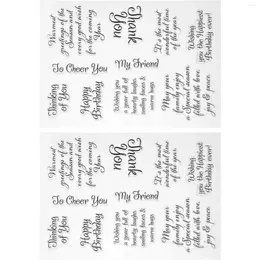 Warmest
greetings of the
Season and
every good wish
for the coming
Year
Thank
You
It's the most
wonderful time
of the year.
Wishing
you the Happiest
Birthday ever!
To Cheer You
My Friend
Thinking
of You
Happy
Birthday
Wishing you
a year full of
hearty laughs
smiling faces &
warm hugs
May your
family enjoy
a Special season
filled with love,
joy & peace.
Warmest
greetings of the
Season and
every good wish
for the coming
Year
Thank
You
It's the most
wonderful time
of the year.
Wishing
you the Happiest
Birthday ever!
To Cheer You
My Friend
Thinking
of You
Happy
Birthday
Wishing you
a year full of
hearty laughs
smiling faces &
warm hugs
May your
family enjoy
a Special season
filled with love,
joy & peace.